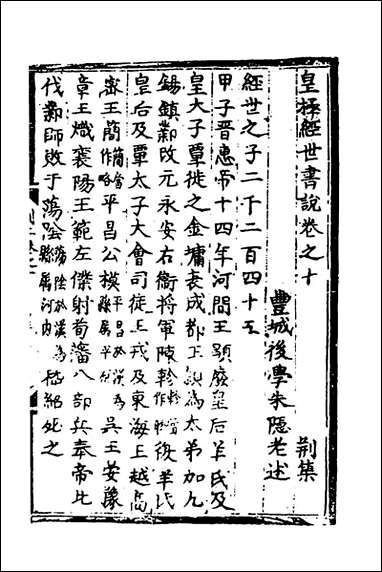 皇極經世書說卷之十
荆集
豐城後學朱隱老述
經世之子二千二百四十五
甲子晉惠帝十四年河間王顒廢皇后羊氏及
皇大子覃徙之金墉表成都王頴為太弟加九
錫鎮鄴改元永安右衛將軍陳軫復羊氏
皇后及覃太子大會司徒王戎及東海王越高
密王簡簡會作略平昌公模平昌於漢為縣屬平昌吳王晏豫
章王熾襄陽王範左僕射荀藩八部兵奉帝北
伐鄴師敗于蕩陰蕩陰於漢為縣屬河內嵇紹死之